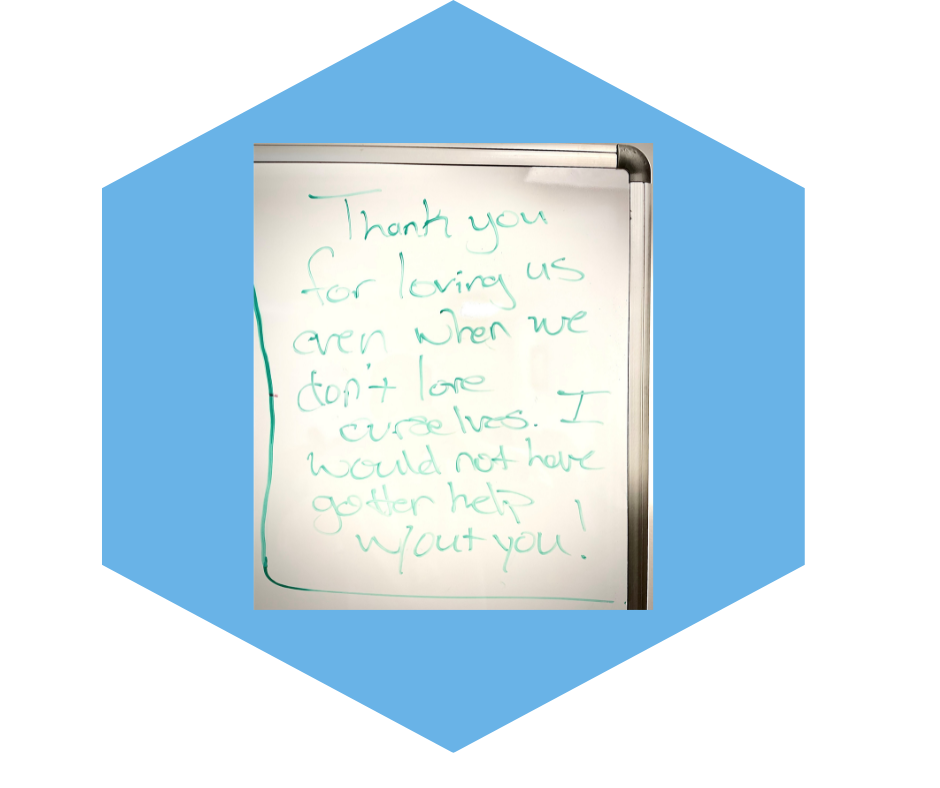 Thank you
for loving us
even when we
don't love
ourselves. I
would not have
gotten help
w/out you!